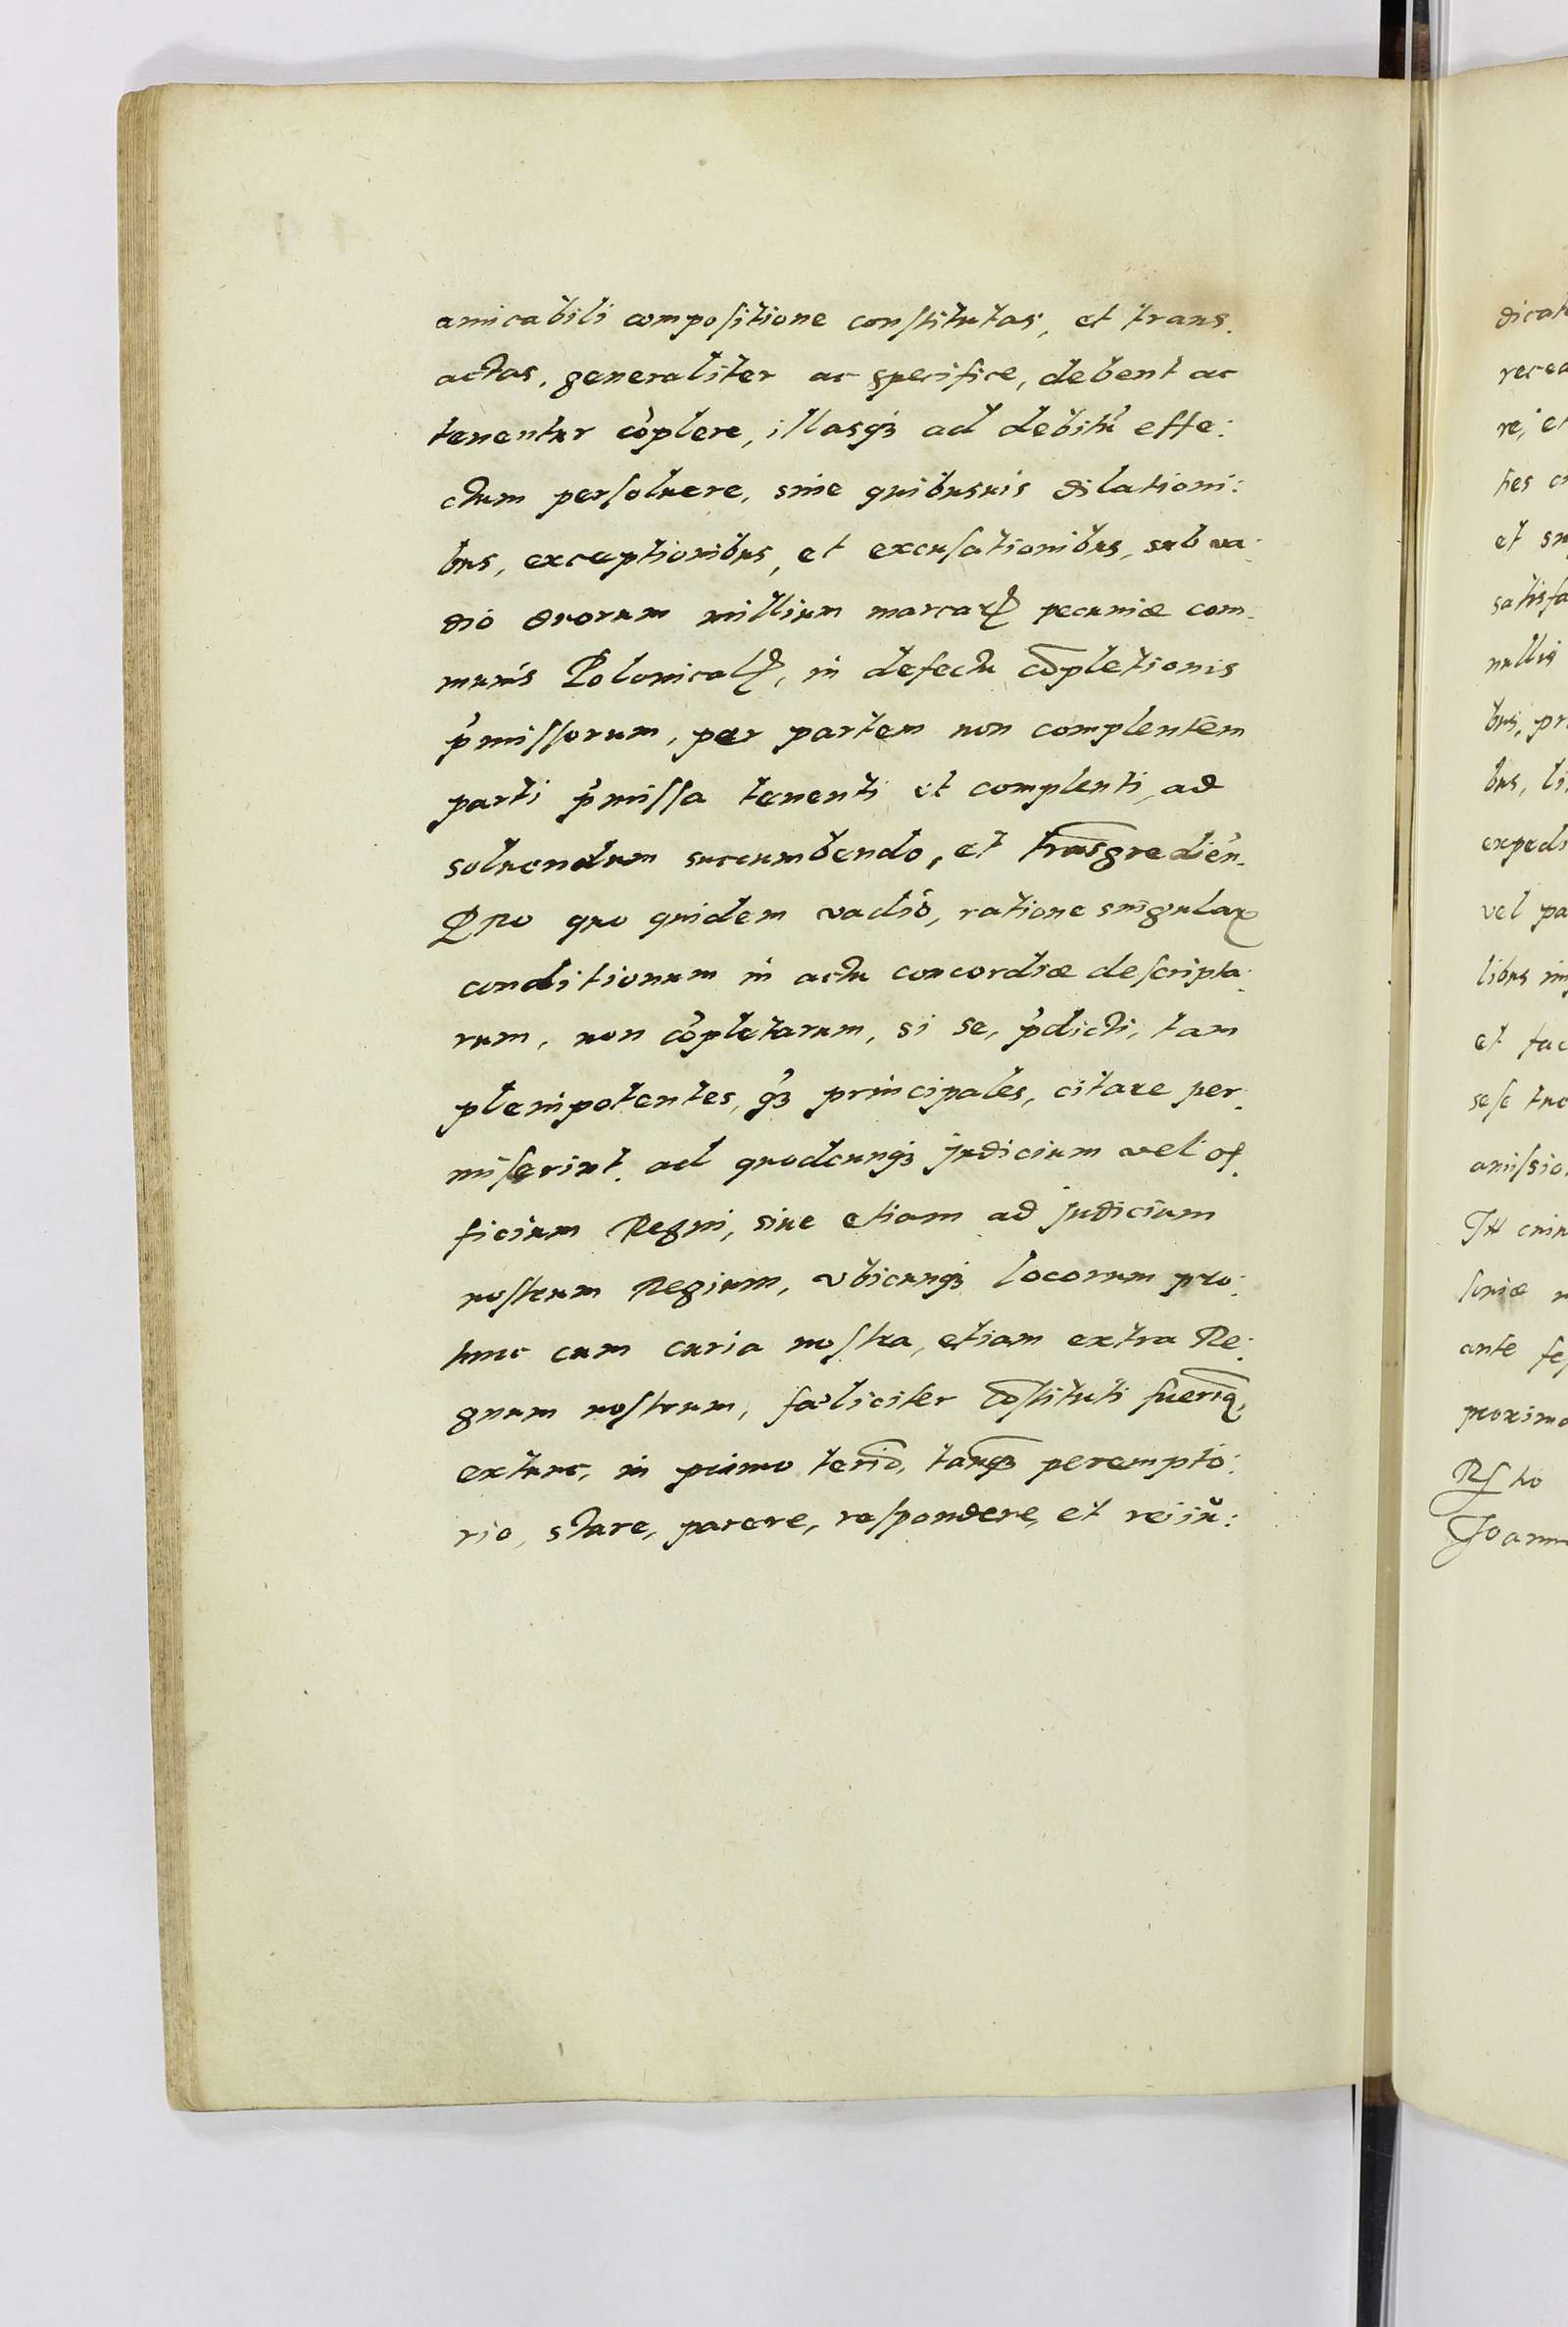 amicabili compoſitione conſtitutas, et trans.
actas, generaliter ac specifice, debent ac
tenentur cōplere, illasqꝫ ad debitū effe:
ctum perſoluere, sine quibusuis dilationi:
bus, exceptionibus, et excuſationibus, sub va:
dio duorum millium marcarꝝ pecuniæ com.
munis Polonicalꝝ, in defectu cōpletionis
p̄miſſorum, per partem non complentem
parti p̄miſſa tenenti et complenti, ad
soluendum succumbendo, et trāsgredien̄.
Pro quo quidem vadio, ratione singularꝝ
conditionum in actu concordiæ deſcripta:
rum, non cōpletarum, si se, p̄dicti, tam
plenipotentes, qꝫ principales, citare per.
miſerint. ad quodcunqꝫ judicium vel of.
ficium Regni, siue etiam ad judicium
noſtrum Regium, vbicunqꝫ locorum pro:
tunc cum curia noſtra, etiam extra Re:
gnum noſtrum, fæliciter cōſtituti fuerimꝰ,
extunc, in primo termō, tanqꝫ perempto:
rio, stare, parere, reſpondere, et reiiu:
dicat
recea
re, et
ties
et
satisfa
nullis
bus, pr
bus, li
expedi
vel pa
libus im
et fac
seſe
amiſsio
In cuiu

ante feſ
proximo

Joanne